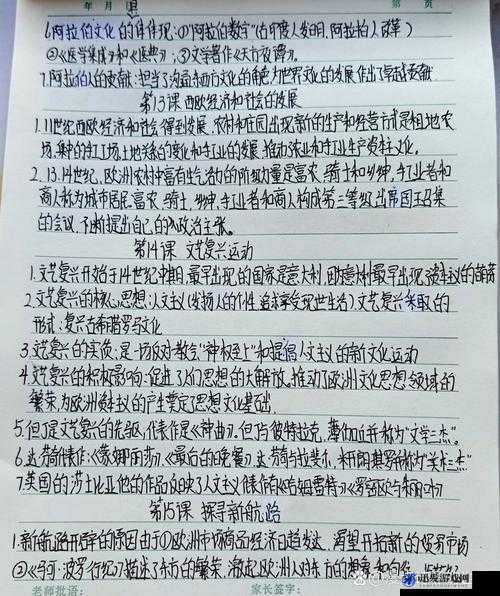 年 月 日
6.阿拉伯文化的具体体现:①"阿拉伯数字"(古印度人发明,阿拉伯人改革)
②《医学集成》和《医典》;③文学著作《天方夜谭》。
7.阿拉伯人的贡献:担当了沟通东西方文化的桥梁,为世界文化的发展作出了卓越贡献
第13课 西欧经济和社会的发展
1.11世纪西欧经济和社会得到发展,农村和庄园出现新的生产和经营方式是租地农
场,集中的手工工场土地关系的变化和手工业的发展,推动农业和手工业生产资料文化。
2.13.14世纪,欧洲农村中富有生气活力的阶级力量是富农、骑士和乡绅,手工业者和
商人称为城市居民。富农、骑士、乡绅、手工业者和商人构成第三等级,出席国王召集
的会议,不断提出自己的政治主张。
第14课 文艺复兴运动
1.文艺复兴开始于14世纪中期,最早出现的国家是意大利,因为意大利最早出现资本主义的萌芽
2.文艺复兴的核心思想:人文主义(发扬人的个性,追求享受现世生活)文艺复兴采取的
形式:复兴古希腊罗马文化
3.文艺复兴的实质:是一场反对教会"神权至上"和提倡人文主义的新文化运动
4.文艺复兴的积极影响:促进了人们思想的大解放,推动了欧洲文化思想领域的
繁荣,为欧洲资本主义的产生奠定了思想文化基础.
5.但丁是文艺复兴的先驱,代表作是《神曲》。但丁与彼特拉克,薄伽丘并称为"文学三杰"。
6.达芬奇代表作:《蒙娜丽莎》《最后的晚餐》达芬奇与拉斐尔,米开朗基罗称为"美术三杰"
7英国的莎士比亚他的作品反映了人文主义代表作有《哈姆雷特》《罗密欧与朱丽叶》
第15课 探寻新航路
1.新航路开辟的原因由于①欧洲市场商品经济日趋发达,渴望开拓新的贸易市场
②《马可·波罗行纪》描述了东方的繁荣,激起欧洲人对东方的想象和向往
老师批语: 家长签字:
迅发游戏网